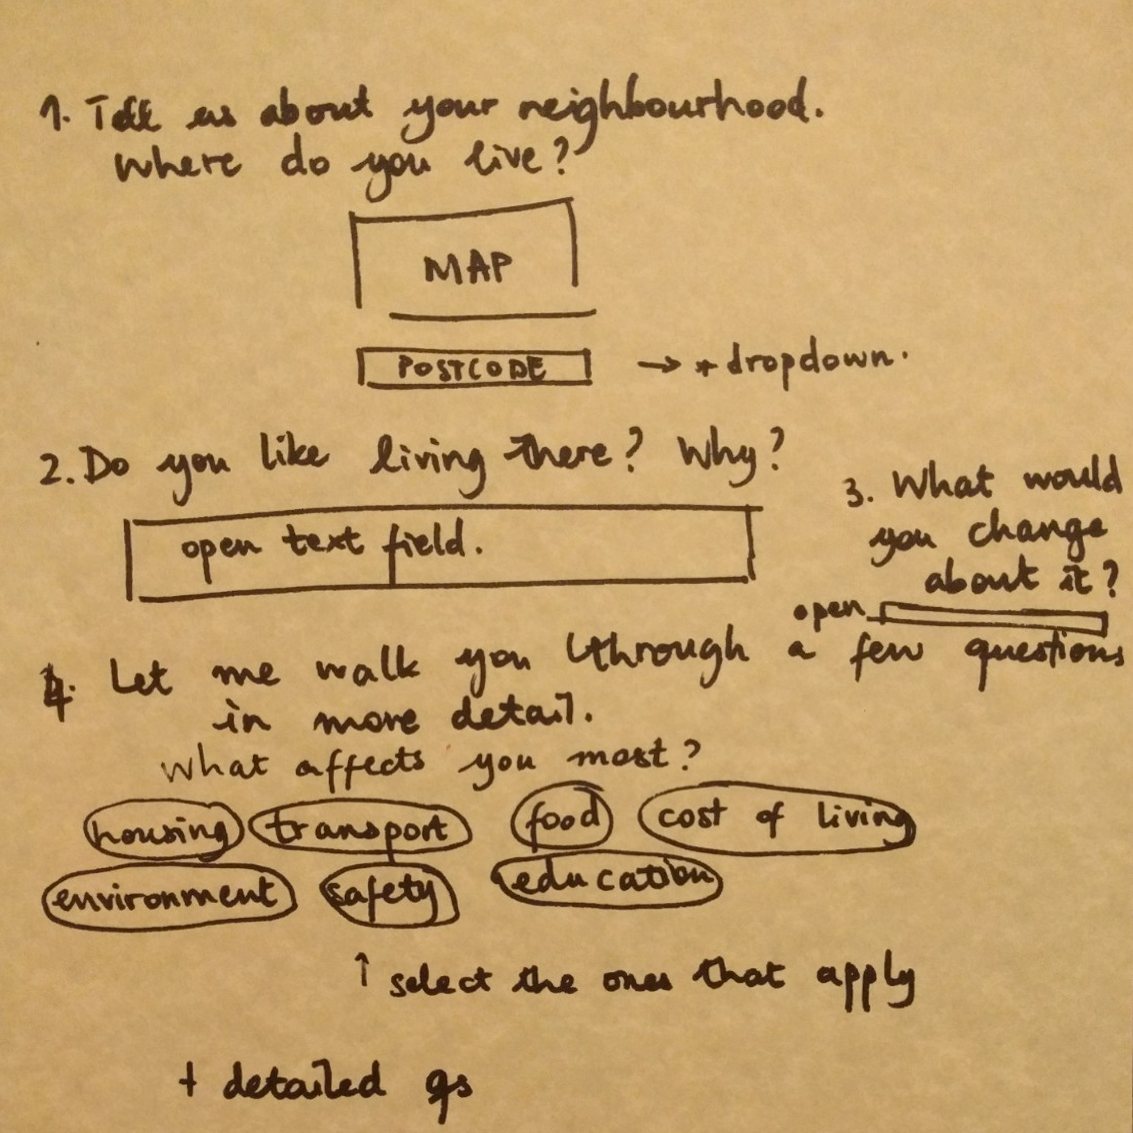 1. Tell us about your neighbourhood.
Where do you live?
MAP
POSTCODE → + dropdown.
2. Do you like living there? Why?
open text field.
3. What would
you change
about it?
open
4. Let me walk you through a few questions
in more detail.
What affects you most?
housing transport food cost of living
environment safety education
↑ select the ones that apply
+ detailed qs